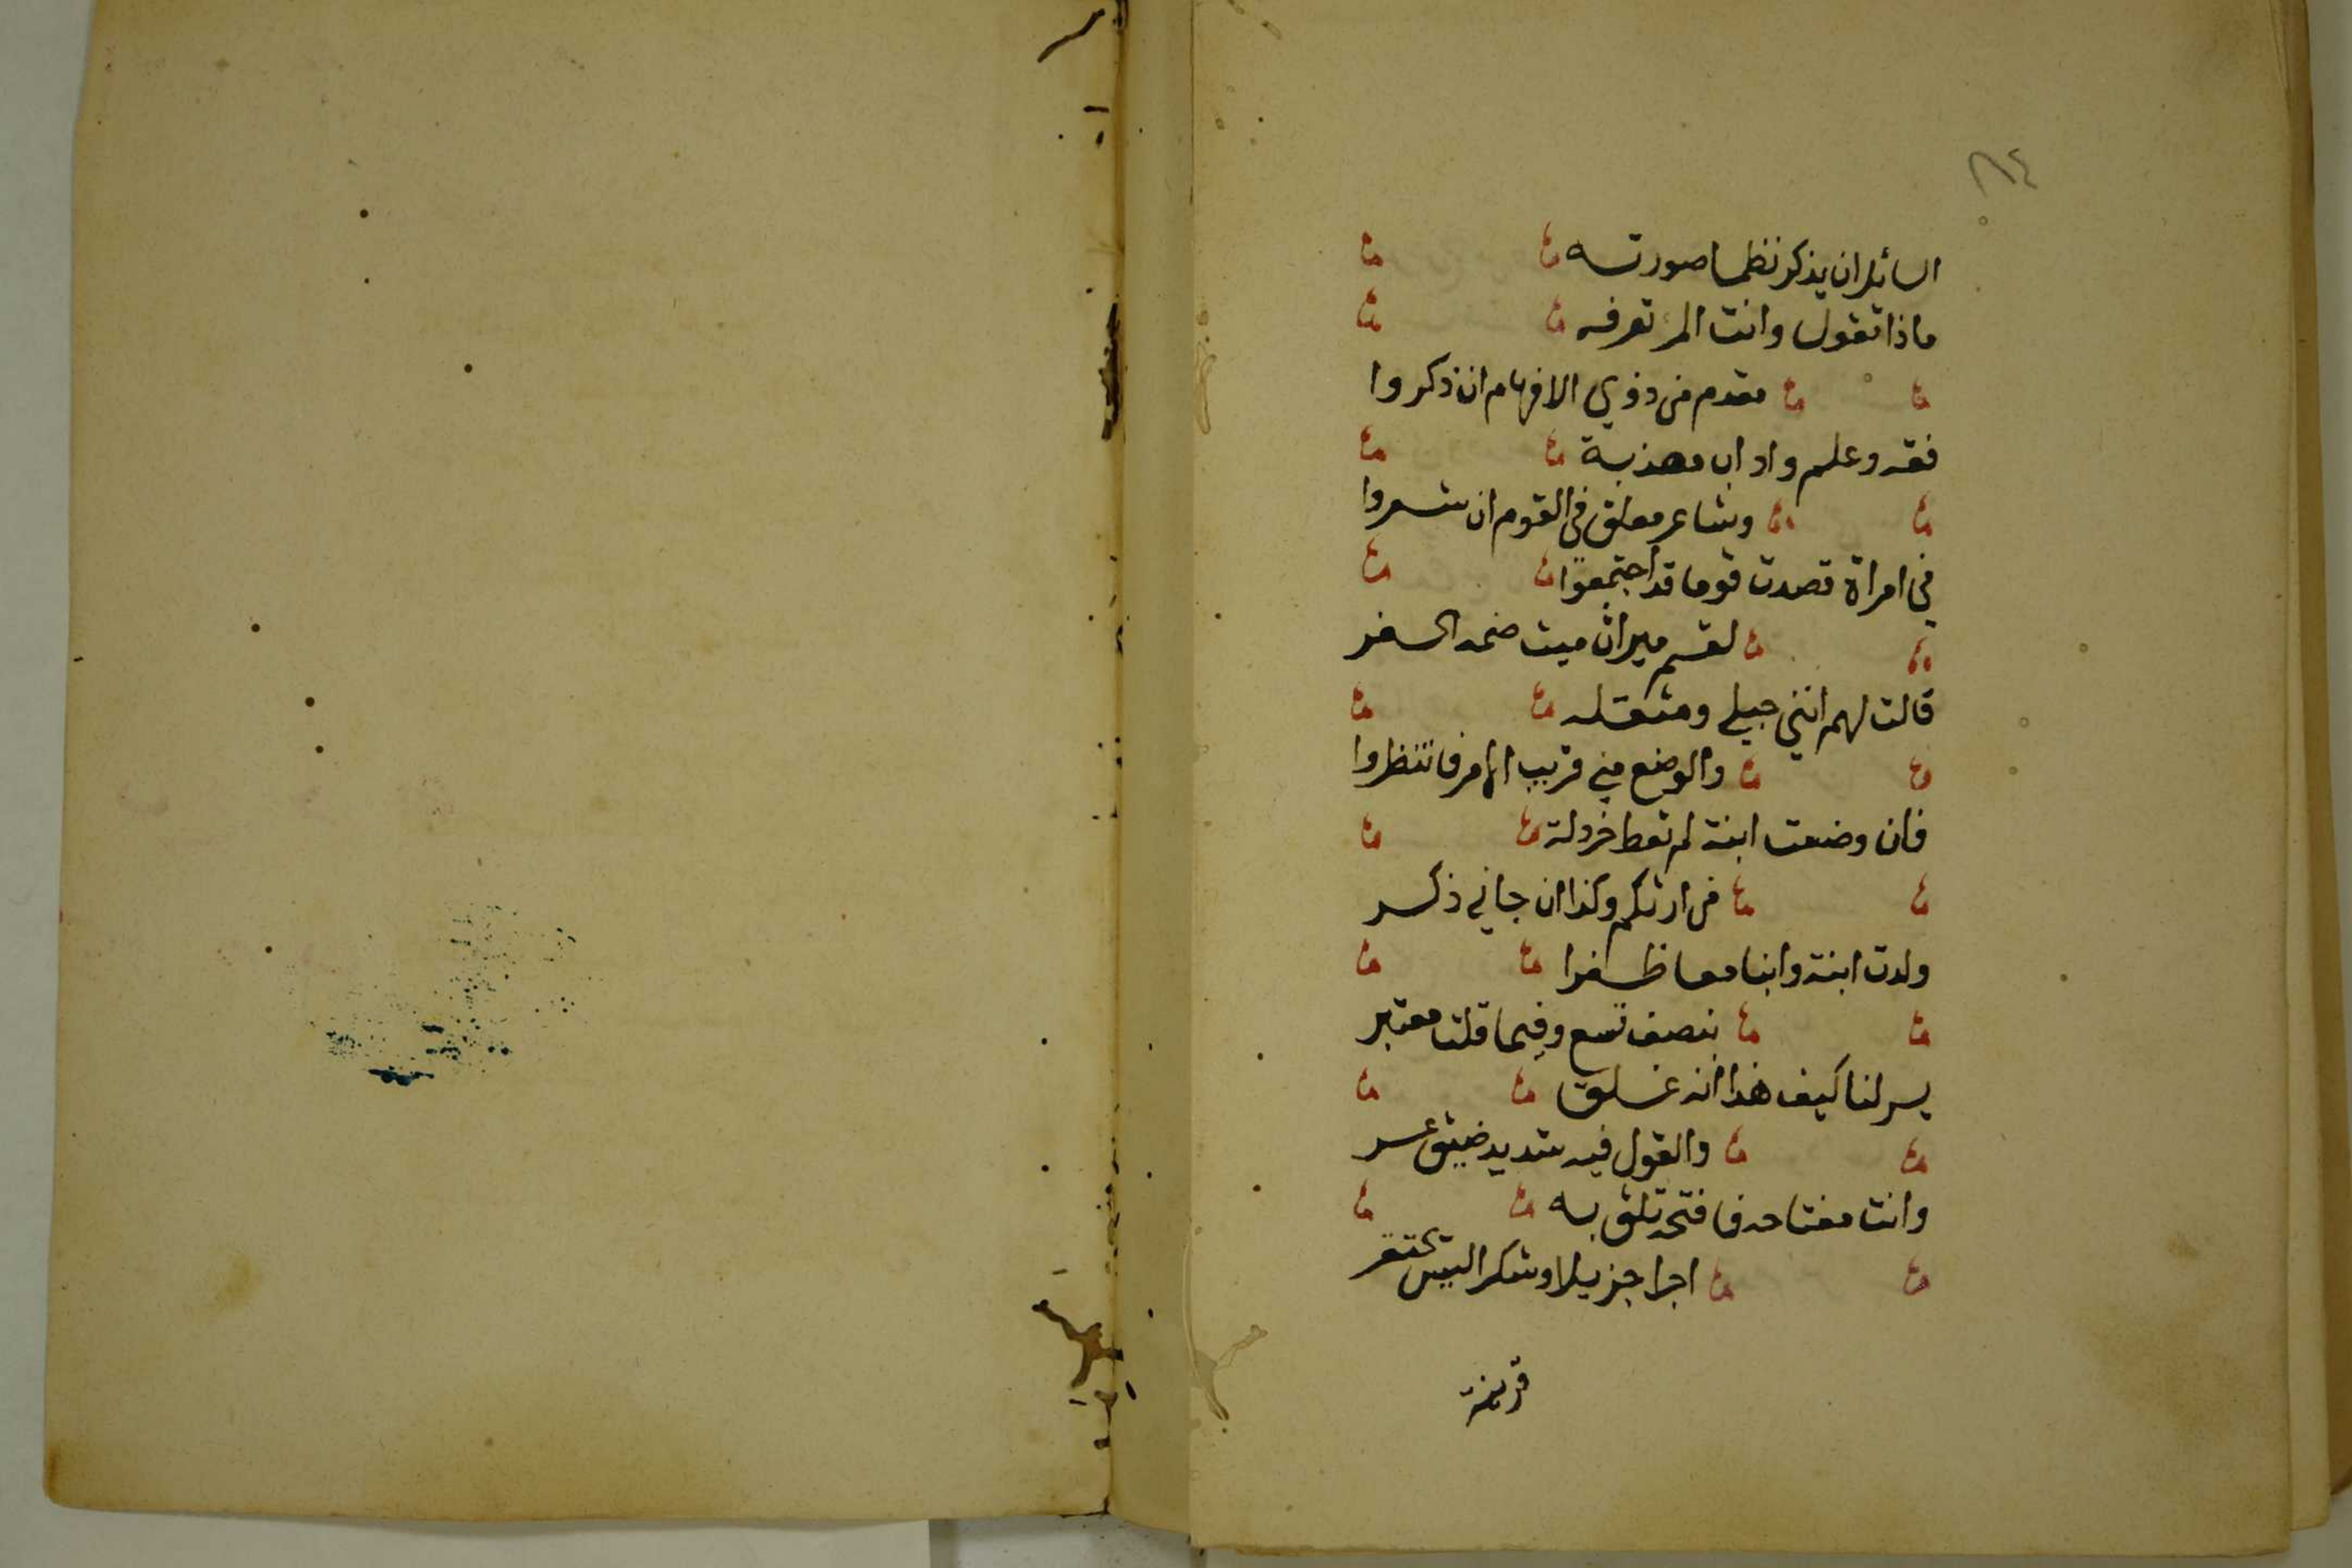 ٨٤
السائل ان يذكر نظما صورته
ماذا تقول وانت المرء تعرفه
مقدم من ذوي الافهام ان ذكروا
فقه وعلم واداب مهذبة
وشاعر معلق في القوم ان شعروا
في امراة قصدت قوما قد اجتمعوا
لقسم ميراث ميت ضمه الحفر
قالت لهم انني حبلى ومثقله
والوضع مني قريب الامر فانتظروا
فان وضعت ابنة لم تعط خردلة
من ارثكم وكذا ان جاني ذكر
ولدت ابنة وابنا معا ظفرا
بنصف تسع وفيما قلت معتبر
يسر لنا كيف هذا انه غلق
والقول فيه شديد ضيق عسر
وانت مفتاحه فافتحه تلق به
اجرا جزيلا وشكرا ليس يحتقر